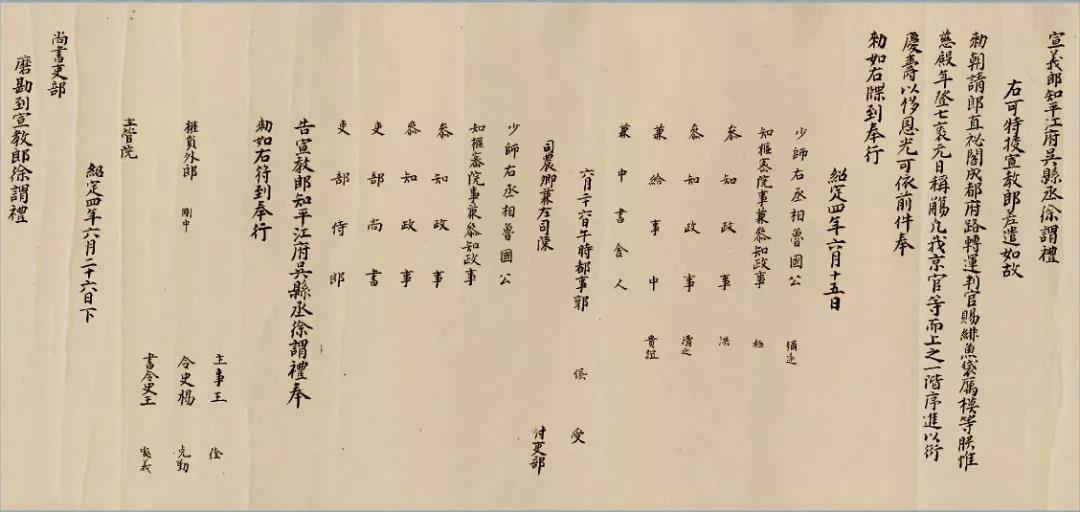 宣義郎知平江府吳縣丞徐謂禮
右可特授宣教郎差遣如故
勑朝請郎直祕閣成都府路轉運判官賜緋魚袋厲模等朕惟
慈殿年登七袠元日稱觴凡我京官等而上之一階序進以衍
慶壽以侈恩光可依前件奉
勑如右牒到奉行
紹定四年六月十五日
少師右丞相魯國公 彌遠
知樞密院事兼參知政事 極
參知政事 洪
參知政事 清之
兼給事中 貴誼
兼中書舍人
六月二十六日午時都事郭 俟 受
司農卿兼左司陳 付吏部
少師右丞相魯國公
知樞密院事兼參知政事
參知政事
參知政事
吏部尚書
吏部侍郎
告宣教郎知平江府吳縣丞徐謂禮奉
勑如右符到奉行
主事王 佺
權員外郎 剛中 令史楊 光勳
書令史王 寅義
主管院
紹定四年六月二十六日下
尚書吏部
磨勘到宣教郎徐謂禮